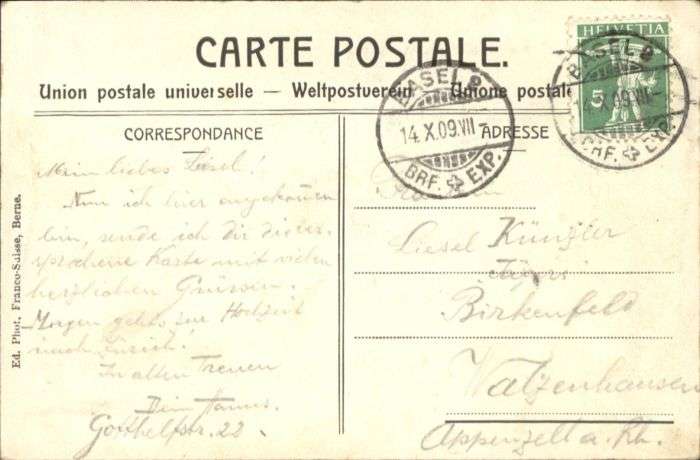 CARTE POSTALE.
Union postale universelle — Weltpostverein — Unione postale
HELVETIA
5
BASEL 2
14.X.09.VII-
BRF. EXP.
BASEL 2
X.09.VII-
BRF. EXP.
CORRESPONDANCE
ADRESSE
Mein liebes Liesel!
Nun ich hier angekommen
bin, sende ich dir die ver-
sprochene Karte mit vielen
herzlichen Grüssen.
Morgen gehts zur Hochzeit
nach Zürich!
In alten Treuen
Dein Hannes.
Gotthelfstr. 22.
Liesel Künzler
Birkenfeld
Walzenhausen
Appenzell a. Rh.
Ed. Phot. Franco-Suisse, Berne.